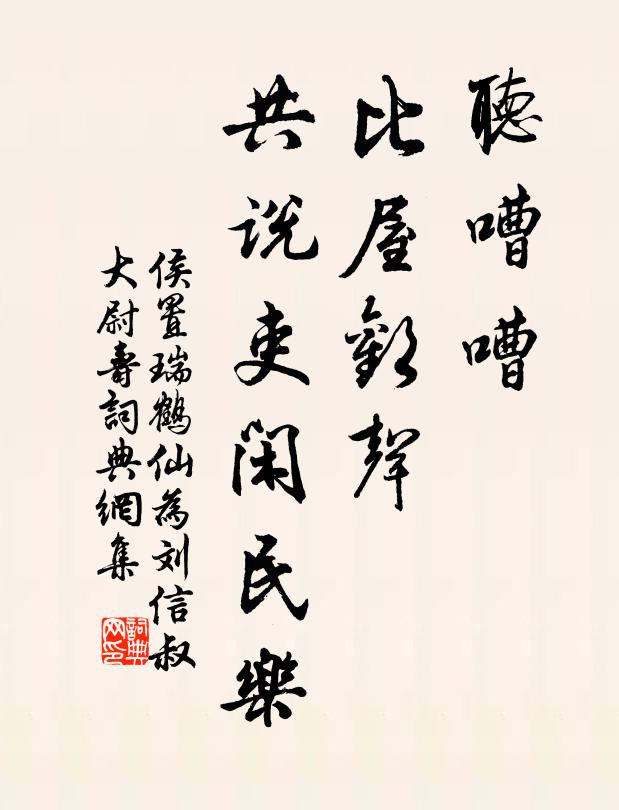 聽嘈嘈
比屋歡聲
共说吏闲民樂
侯置瑞鶴仙為刘信叔
大尉壽詞典網集
詞典
网印